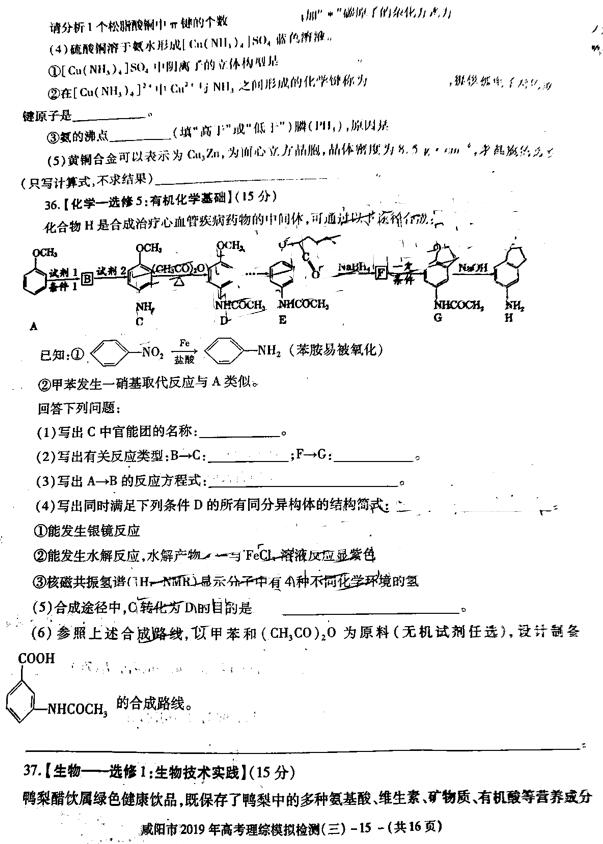 请分析1个松脂酸铜中π键的个数
加"*"碳原子的杂化方式为
(4)硫酸铜溶于氨水形成[Cu(NH₃)₄]SO₄蓝色溶液。
①[Cu(NH₃)₄]SO₄中阴离子的立体构型是
②在[Cu(NH₃)₄]²⁺中Cu²⁺与NH₃之间形成的化学键称为 ,提供孤电子对的成
键原子是________。
③氨的沸点________(填"高于"或"低于")膦(PH₃),原因是
(5)黄铜合金可以表示为Cu₃Zn,为面心立方晶胞,晶体密度为8.5 g·cm⁻³,
(只写计算式,不求结果)________
36.【化学—选修5:有机化学基础】(15分)
化合物H是合成治疗心血管疾病药物的中间体,可通过以下途径合成:
OCH₃ 试剂1 条件1 B 试剂2 OCH₃ NH₂ (CH₃CO)₂O △ OCH₃ NHCOCH₃ … O O NHCOCH₃ NaBH₄ F 条件 NHCOCH₃ NaOH NH₂
A C D E G H
已知:① —NO₂ Fe 盐酸 —NH₂ (苯胺易被氧化)
②甲苯发生一硝基取代反应与A类似。
回答下列问题:
(1)写出C中官能团的名称:________。
(2)写出有关反应类型:B→C:________;F→G:________。
(3)写出A→B的反应方程式:________。
(4)写出同时满足下列条件D的所有同分异构体的结构简式:
①能发生银镜反应
②能发生水解反应,水解产物之一与FeCl₃溶液反应显紫色
③核磁共振氢谱(¹H—NMR)显示分子中有4种不同化学环境的氢
(5)合成途径中,C转化为D的目的是________。
(6)参照上述合成路线,以甲苯和(CH₃CO)₂O为原料(无机试剂任选),设计制备
COOH
—NHCOCH₃ 的合成路线。
________。
37.【生物——选修1:生物技术实践】(15分)
鸭梨醋饮属绿色健康饮品,既保存了鸭梨中的多种氨基酸、维生素、矿物质、有机酸等营养成分
咸阳市2019年高考理综模拟检测(三)-15-(共16页)